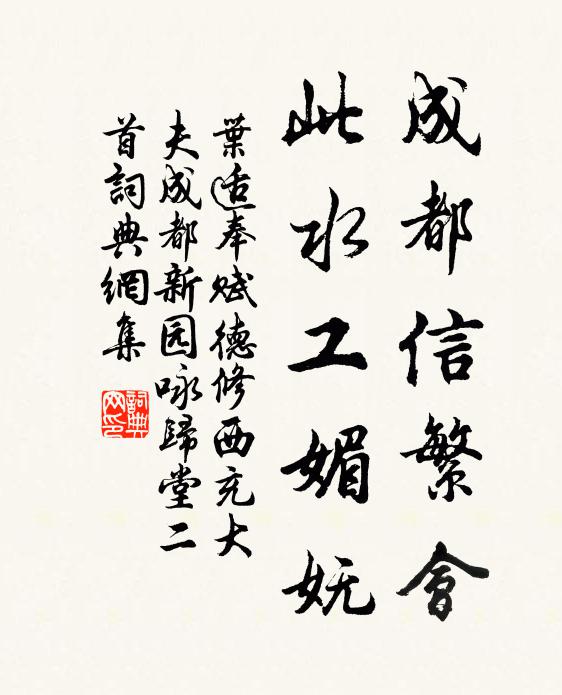 成都信繁會
此水工媚妩
葉适奉赋德修西充大
夫成都新园咏歸堂二
首詞典網集
詞典网印